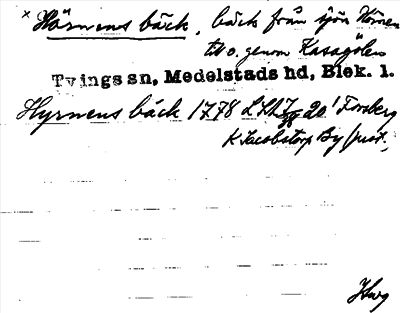 × Hörnens bäck, bäck från sjön Hörnen
til o. genom Kasagölen
Tvings sn, Medelstads hd, Blek. l.
Hyrnens bäck 1778 LSA 20' Forsberg
K. Jacobstorp By just.